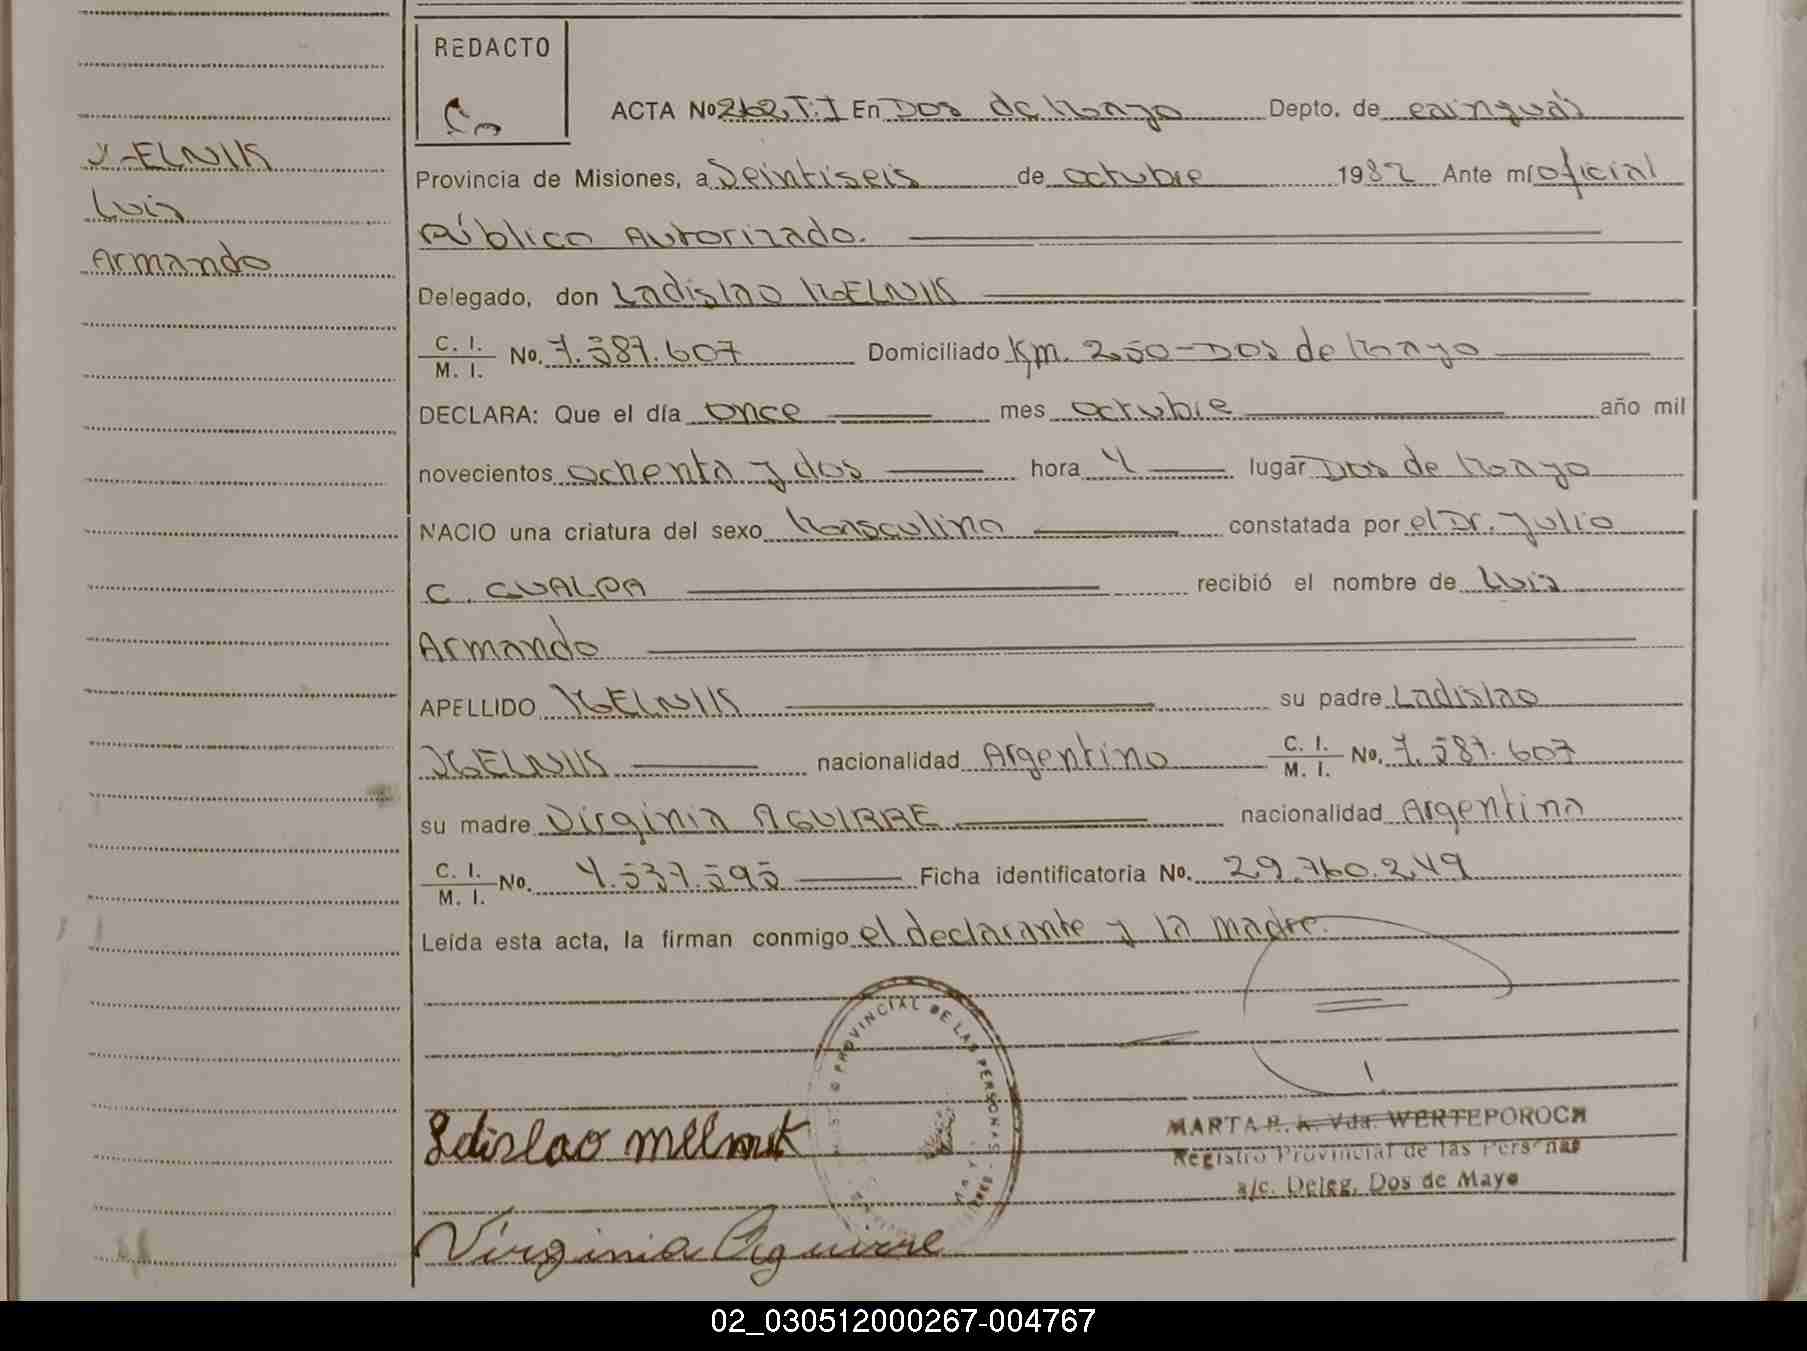 REDACTO
ACTA No 262, T: I En Dos de Mayo Depto. de cainguás
MELNIK
Luis
Armando
Provincia de Misiones, a veintiseis de octubre 1982 Ante mí oficial
Público Autorizado.
Delegado, don Ladislao MELNIK
C. I.
M. I. No. 7.587.607 Domiciliado Km. 250-Dos de Mayo
DECLARA: Que el día once mes octubre año mil
novecientos ochenta y dos hora 4 lugar Dos de Mayo
NACIO una criatura del sexo Masculino constatada por el Dr. Julio
C. GUALPA recibió el nombre de Luis
Armando
APELLIDO MELNIK su padre Ladislao
MELNIK nacionalidad Argentino C. I.
M. I. No. 7.587.607
su madre Virginia AGUIRRE nacionalidad Argentina
C. I.
M. I. No. 4.537.595 Ficha identificatoria No. 29.760.249
Leída esta acta, la firman conmigo el declarante y la madre.
PROVINCIAL DE LAS PERSONAS
Ladislao Melnik
Virginia Aguirre
MARTA R. K. Vda. WERTEPOROCH
Registro Provincial de las Personas
a/c. Deleg. Dos de Mayo
02_030512000267-004767